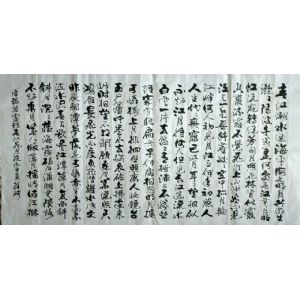 春江潮水連海平海上明月共潮生
灩灩隨波千萬里何處春江無月明
江流宛轉繞芳甸月照花林皆似霰
空里流霜不覺飛汀上白沙看不見
江天一色無纖塵皎皎空中孤月輪
江畔何人初見月江月何年初照人
人生代代無窮已江月年年望相似
不知江月待何人但見長江送流水
白雲一片去悠悠青楓浦上不勝愁
誰家今夜扁舟子何處相思明月樓
可憐樓上月徘徊應照離人妝鏡台
玉戶簾中卷不去搗衣砧上拂還來
此時相望不相聞願逐月華流照君
鴻雁長飛光不度魚龍潛躍水成文
昨夜閑潭夢落花可憐春半不還家
江水流春去欲盡江潭落月復西斜
斜月沉沉藏海霧碣石瀟湘無限路
不知乘月幾人歸落月搖情滿江樹